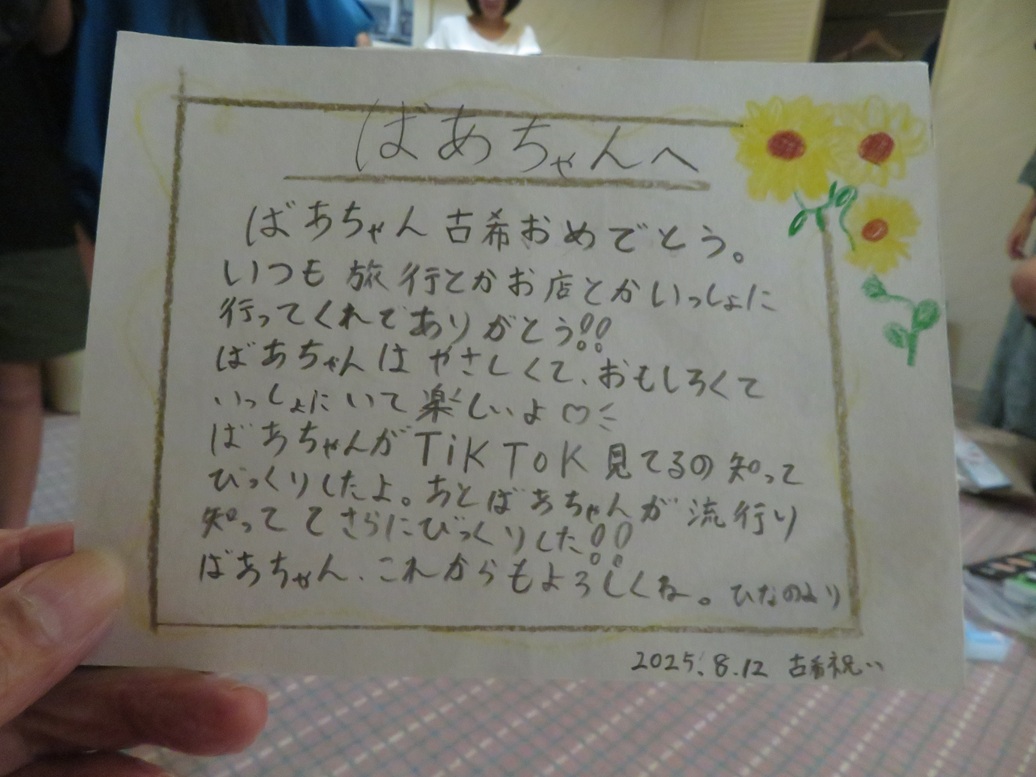 ばあちゃんへ
ばあちゃん古希おめでとう。
いつも旅行とかお店とかいっしょに
行ってくれてありがとう!!
ばあちゃんはやさしくて、おもしろくて
いっしょにいて楽しいよ♡
ばあちゃんがTiKToK見てるの知って
びっくりしたよ。あとばあちゃんが流行り
知っててさらにびっくりした!!
ばあちゃん、これからもよろしくね。 ひなのより
2025.8.12 古希祝い